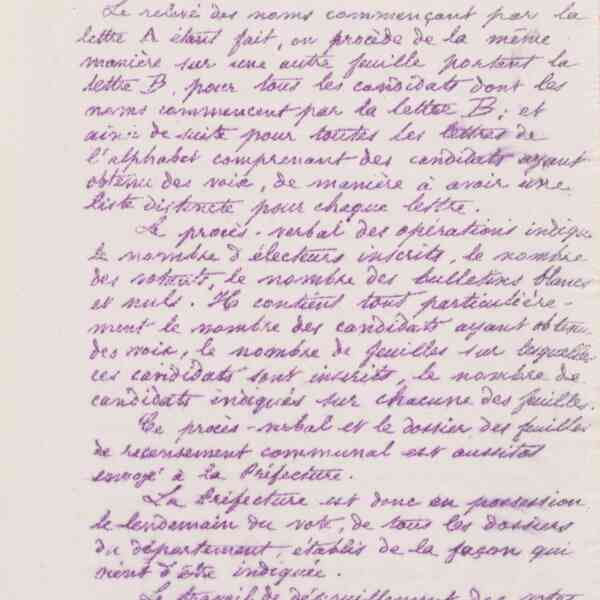 Le relevé des noms commençant par la
lettre A étant fait, on procède de la même
manière sur une autre feuille portant la
lettre B, pour tous les candidats dont les
noms commencent par la lettre B; et
ainsi de suite pour toutes les lettres de
l'alphabet comprenant des candidats ayant
obtenu des voix, de manière à avoir une
liste distincte pour chaque lettre.
Le procès-verbal des opérations indique
le nombre d'électeurs inscrits, le nombre
des votants, le nombre des bulletins blancs
et nuls. Il contient tout particulière-
ment le nombre des candidats ayant obtenu
des voix, le nombre de feuilles sur lesquelles
ces candidats sont inscrits, le nombre de
candidats indiqués sur chacune des feuilles.
Ce procès-verbal et le dossier des feuilles
de recensement communal est aussitôt
envoyé à la Préfecture.
La Préfecture est donc en possession,
le lendemain du vote, de tous les dossiers
du département, établis de la façon qui
vient d'être indiquée.
Le travail de dépouillement des votes